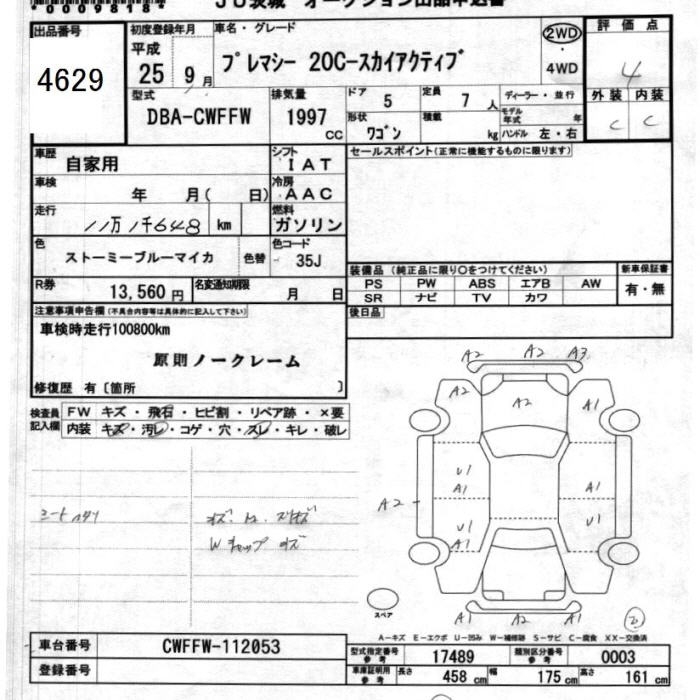 *00098184* JU茨城 オークション出品申込書
出品番号
4629
初度登録年月
平成
25 9月
車名・グレード
プレマシー 20C-スカイアクティブ
2WD
・
4WD
評価点
4
外装 内装
C C
型式
DBA-CWFFW
排気量
1997
CC
ドア 5
定員 7人
形状 ワゴン
積載 kg
ディーラー・並行
モデル年式 年
ハンドル 左・右
車歴 自家用
シフト IAT
車検 年 月( 日)
冷房 AAC
走行 11万1千648 km
燃料 ガソリン
色 ストーミーブルーマイカ 色替
色コード 35J
R券 13,560円
名変通知期限 月 日
注意事項申告欄(不具合内容等は具体的に記入して下さい)
車検時走行100800km
原則ノークレーム
修復歴 有〔箇所 〕
セールスポイント(正常に機能するものに限ります)
装備品(純正品に限り○をつけてください)
PS PW ABS エアB AW
SR ナビ TV カワ
新車保証書
有・無
後日品
検査員記入欄
FW キズ・飛石・ヒビ割・リペア跡・×要
内装 キズ・汚レ・コゲ・穴・スレ・キレ・破レ
Wキャップ
A2 A2 A3
A2 A2 A1
U1
A1 A1
A2
U1 U1
A1
A1 A1 A1
スペア
2
A-キズ E-エクボ U-凹み W-補修跡 S-サビ C-腐食 XX-交換済
車台番号 CWFFW-112053
登録番号
型式指定番号 参考 17489
類別区分番号 参考 0003
車庫証明用 参考 長さ 458 cm 幅 175 cm 高さ 161 cm